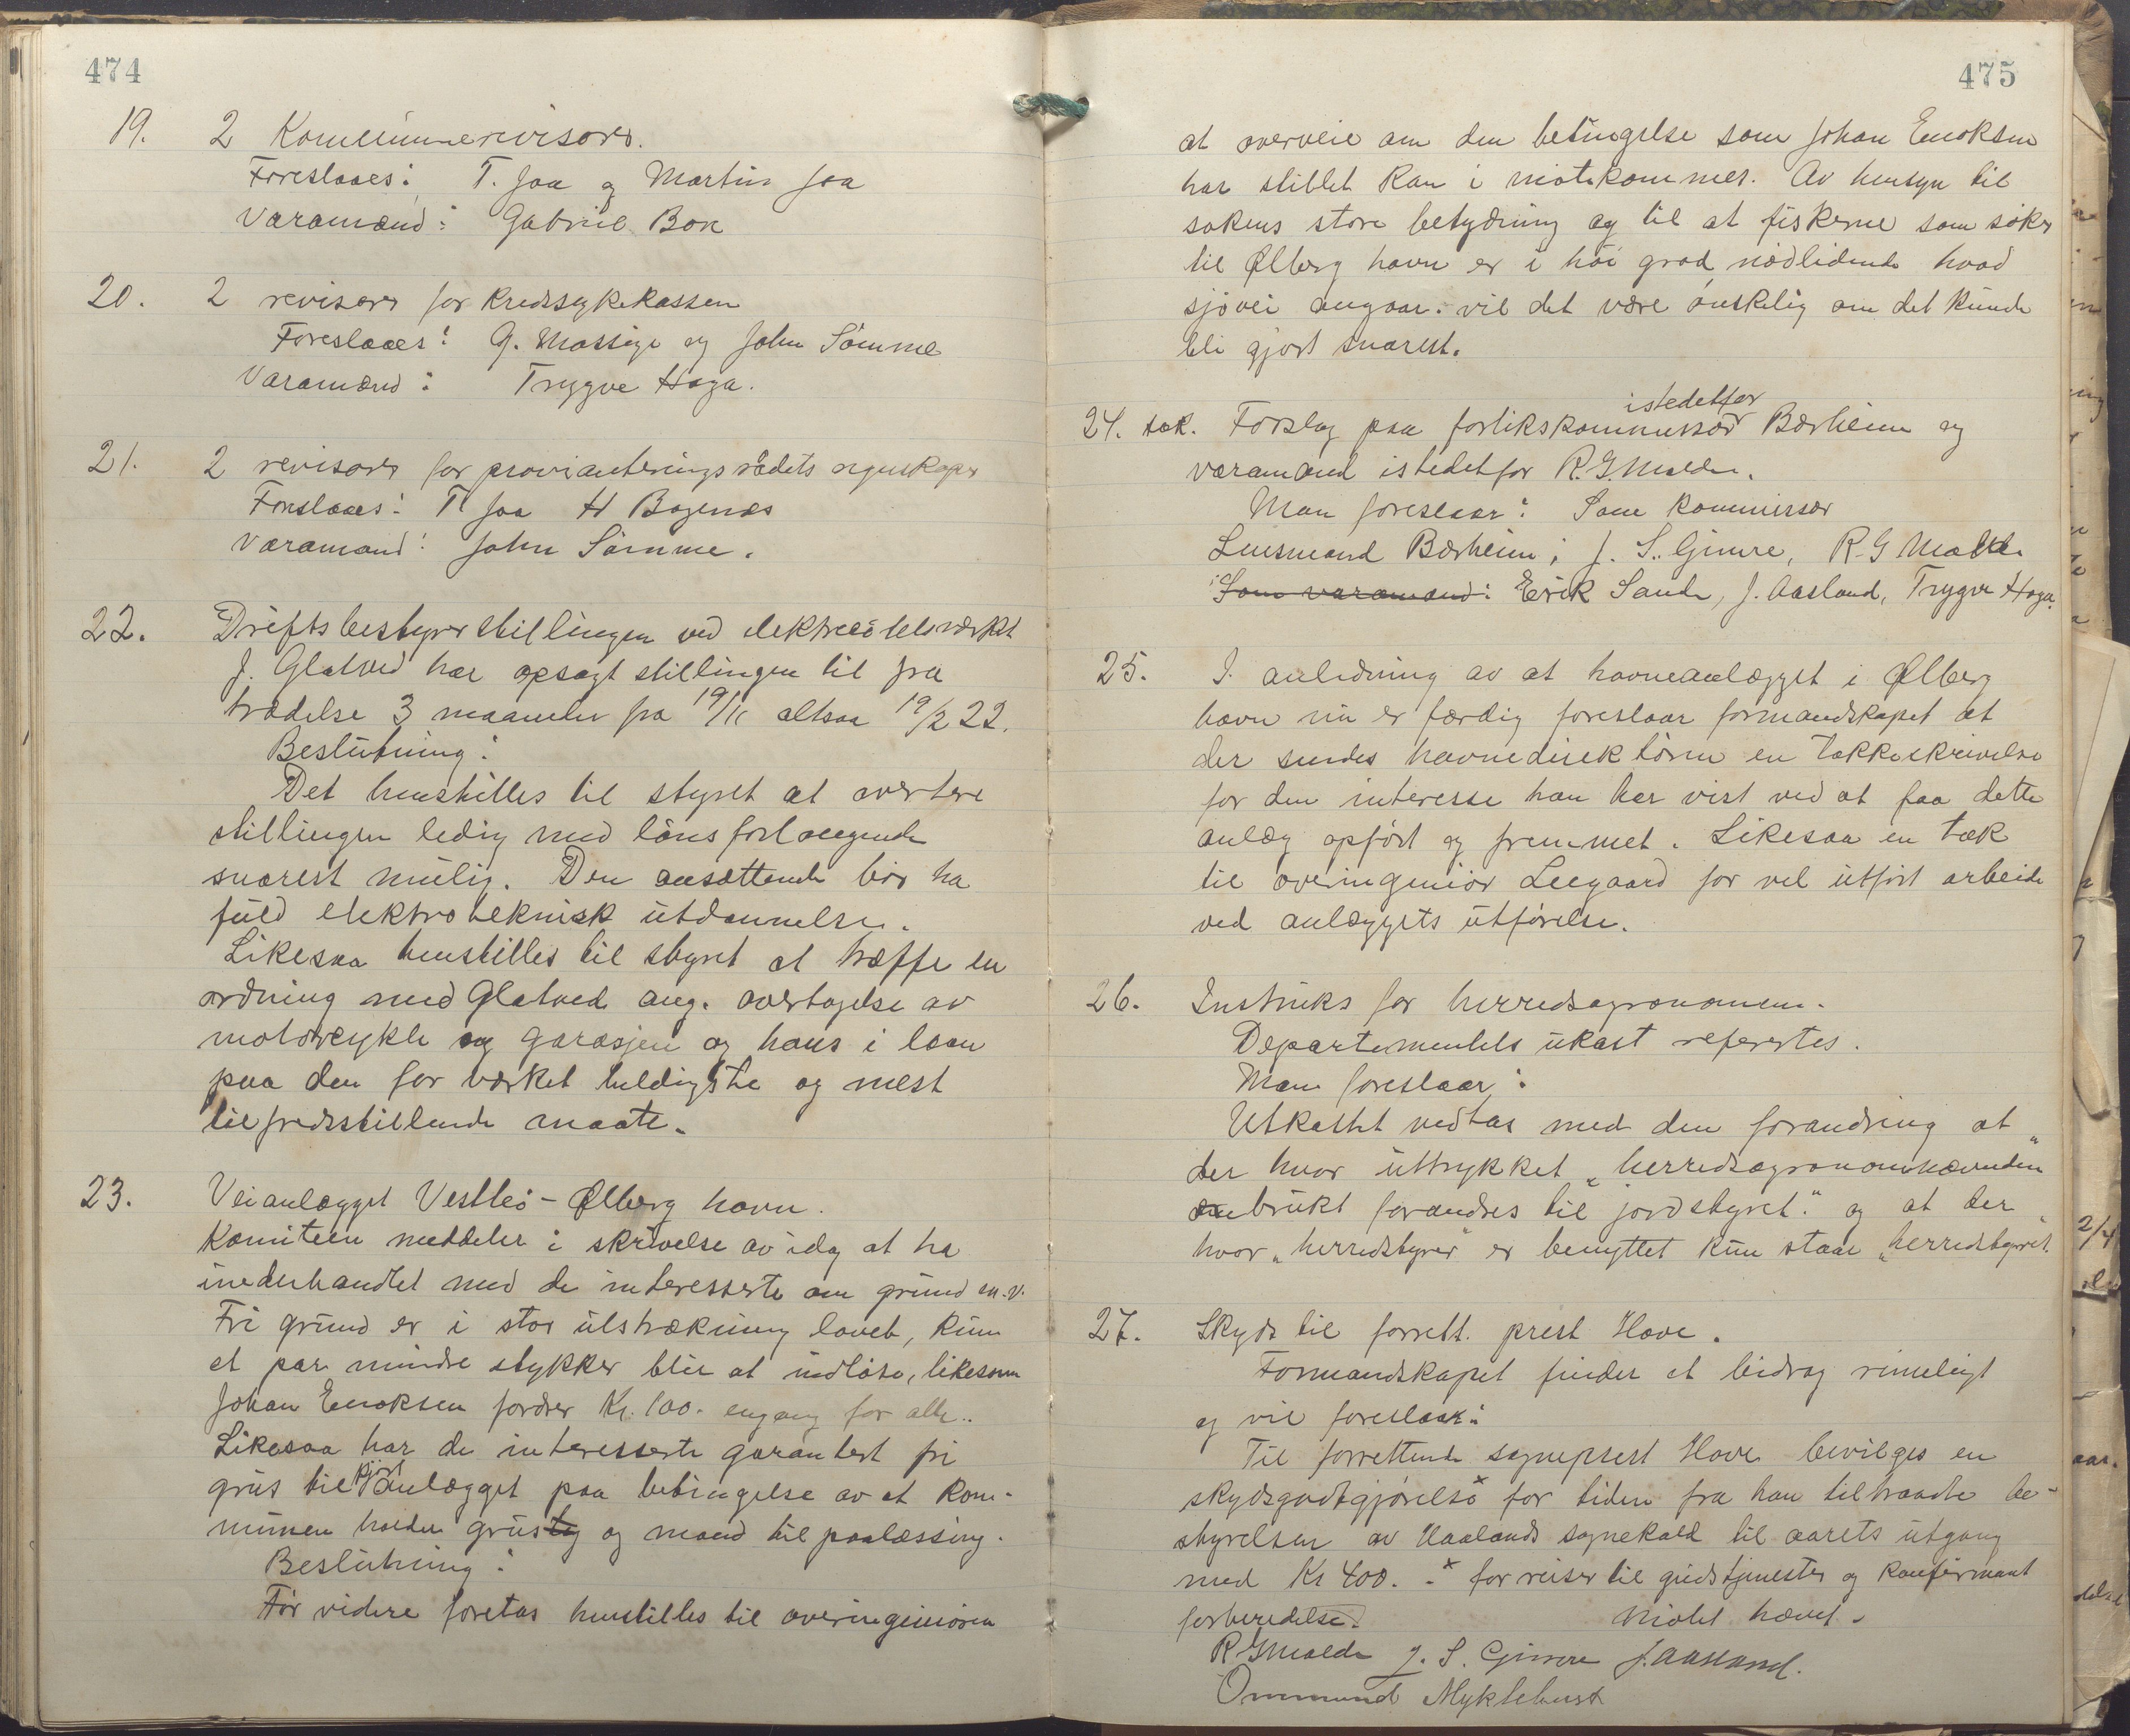 474
19. 2 Kommunerevisorer.
Foreslaaes: T. Joa og Martin Joa
Varamænd: Gabriel Bore
20. 2 revisorer for Kredssykekassen
Foreslaaes: G. Mossige og John Sömme
Varamænd: Trygve Haga.
21. 2 revisorer for provianteringsrådets regnskaper
Foreslaaes: T. Joa H Bøgenæs
Varamand: John Sömme.
22. Driftsbestyrerstillingen ved elektricitetsverket
J. Glatved har opsagt stillingen til fra
trædelse 3 maaneder fra 19/11 altsaa 19/2 22.
Beslutning:
Det henstilles til styret at avertere
stillingen ledig med lönsforlangende
snarest mulig. Den ansættende bör ha
fuld elektroteknisk utdannelse.
Likesaa henstilles til styret at træffe en
ordning med Glatved ang. overtagelse av
motorcykle og garasjen og hans i laan
paa den for verket heldigste og mest
tilfredsstillende maate.
23. Veianlægget Vestleö - Ølberg havn.
Komiteen meddeler i skrivelse av idag at ha
underhandlet med de interesserte om grund m.v.
Fri grund er i stor utstrækning lovet, kun
et par mindre stykker blir at indlöse, likesom
Johan Enoksen fordrer Kr. 100.- engang for alle..
Likesaa har de interesserte garantert fri
kjört
grus til anlægget paa betingelse av at kom-
munen holder grustag og mand til paalæssing.
Beslutning:
För videre foretas henstilles til overingeniören
475
at overveie om den betingelse som Johan Enoksen
har stillet kan i mötekommes. Av hensyn til
sakens store betydning og til at fiskerne som söker
til Ølberg havn er i höi grad nödlidende hvad
sjövei angaar. vil det være önskelig om det kunde
bli gjort snarest.
istedetfor
24. sak. Forslag paa forlikskommissær Bærheim og
varamand istedetfor R.G. Malde.
Man foreslaar: Som kommissær
Lensmand Bærheim, J. S. Gimre, R. G Malde
Som varamand: Erik Sande, J. Aasland, Trygve Haga.
25. I. anledning av at havneanlægget i Ølberg
havn nu er færdig foreslaar formandskapet at
der sendes havnedirektören en takkeskrivelse
for den interesse han har vist ved at faa dette
anlæg opfört og fremmet. Likesaa en tak
til overingeniör Leegaard for vel utfört arbeide
ved anlæggets utförelse.
26. Instruks for herredsagronomen.
Departementets ukast referertes.
Man foreslaar:
Utkastet vedtas med den forandring at
der hvor uttrykket „herredsagronomnævnden"
er brukt forandres til jordstyret." og at der
hvor „herredstyrer" er benyttet kun staar „herredstyret"
27. Skyds til forrett. prest Hove.
Formandskapet finder et bidrag rimeligt
og vil foreslaar:
Til forrettende sogneprest Hove bevilges en
skydsgodtgjörelse x for tiden fra han tiltraadte be-
styrelsen av Haalands sognekald til aarets utgang
med Kr 400. - x for reiser til gudstjenester og konfirmant
forberedelse. Mötet hævet.
R G Malde J. S. Gimre J. Aasland.
Ommund Myklebust